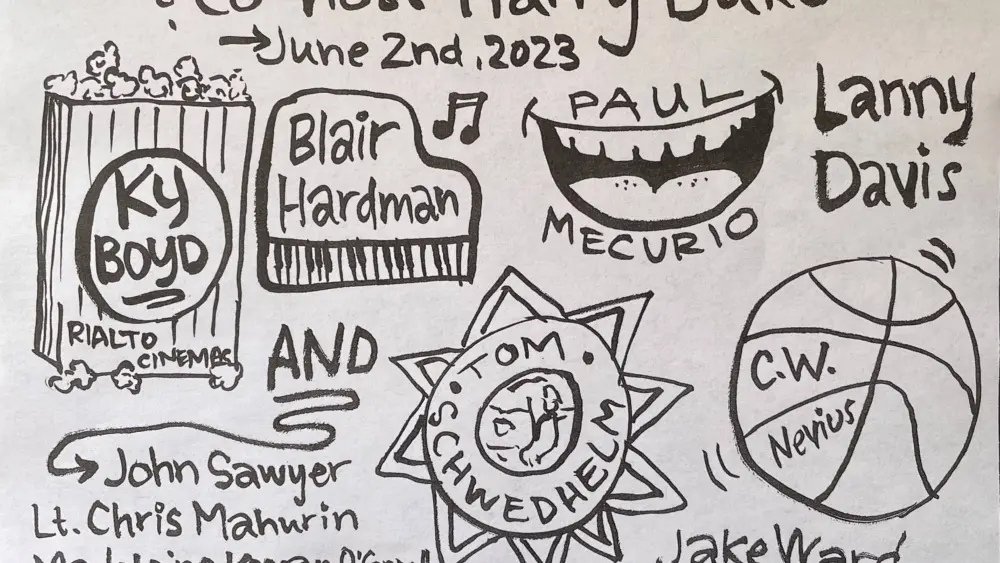 ! co-host Harry Duke
→June 2nd, 2023
KY
BOYD
RIALTO
CINEMAS
Blair
Hardman
PAUL
MECURIO
Lanny
Davis
AND
TOM
SCHWEDHELM
C.W.
Nevius
John Sawyer
Lt. Chris Mahurin
Jake Ward